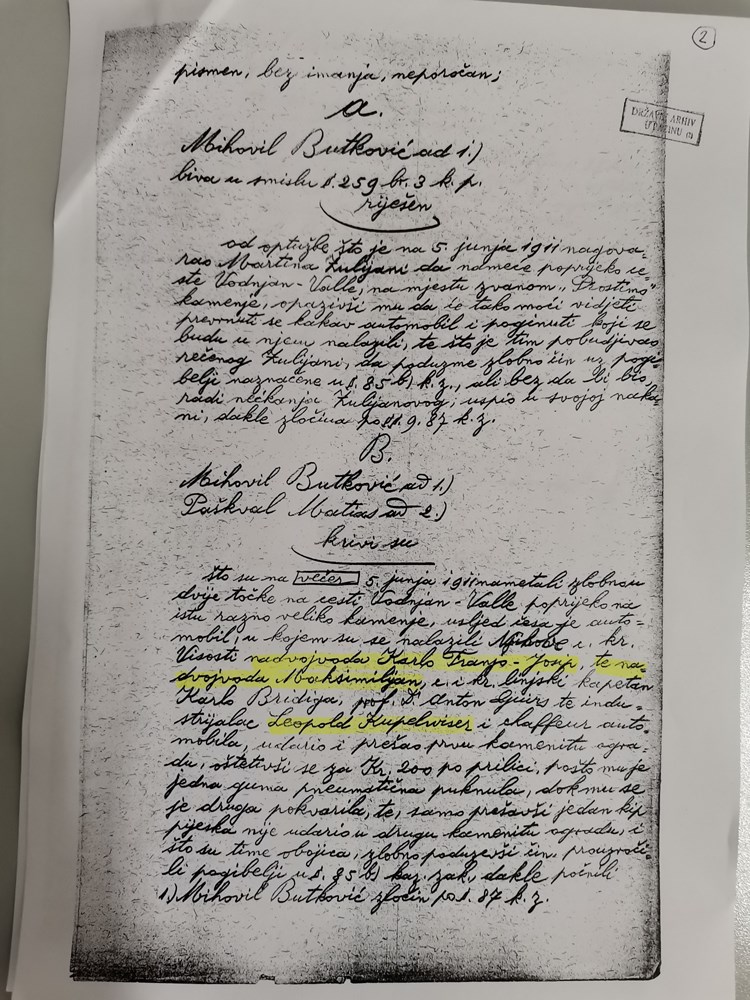 2
pismen, bez imanja, neporočan;
a.
DRŽAVNI ARHIV
U PAZINU (1)
Mihovil Butković ad 1.)
biva u smislu §. 259 br. 3 k. p.
riješen
od optužbe što je na 5. junja 1911 nagova-
rao Martina Zulijani da nameće poprijeko ce-
ste Vodnjan-Valle, na mjestu zvanom „Prostimo"
kamenje, opazivši mu da će tako moći vidjeti
prevrnuti se kakav automobil i poginuti koji se
budu u njem nalazili, te što je tim pobudjivao
rečenog Zulijani, da poduzme zlobno čin uz pogi-
belji naznačene u §. 85 b) k. z., ali bez da bi bio,
radi nećkanja Zulijanovog, uspio u svojoj naka-
ni, dakle zločina po §§. 9. 87 k. z.
B.
Mihovil Butković ad 1.)
Paškval Matias ad 2.)
krivi su
što su na večer 5. junja 1911 nametali zlobno u
dvije točke na cesti Vodnjan-Valle poprijeko na
istu razno veliko kamenje, usljed česa je auto-
mobil, u kojem su se nalazili Njihove c. kr.
Visosti nadvojvoda Karlo Franjo-Josip, te na-
dvojvoda Maksimilijan, c. i kr. linjski kapetan
Karlo Bridiga, prof. D. Anton Gnirs te indu-
strijalac Leopold Kupelwiser i chaffeur auto-
mobila, udario i prešao prvu kamenitu ogra-
du, oštetivši se za Kr. 200 po prilici, pošto mu je
jedna guma pneumatična puknula, dok mu se
je druga pokvarila, te, samo prešavši jedan kip
pijeska nije udario u drugu kamenitu ogradu, i
što su time obojica, zlobno poduzevši čin, prouzroči-
li pogibelji u §. 85 b) kaz. zak, dakle počinili
1.) Mihovil Butković zločin po §. 87 k. z.